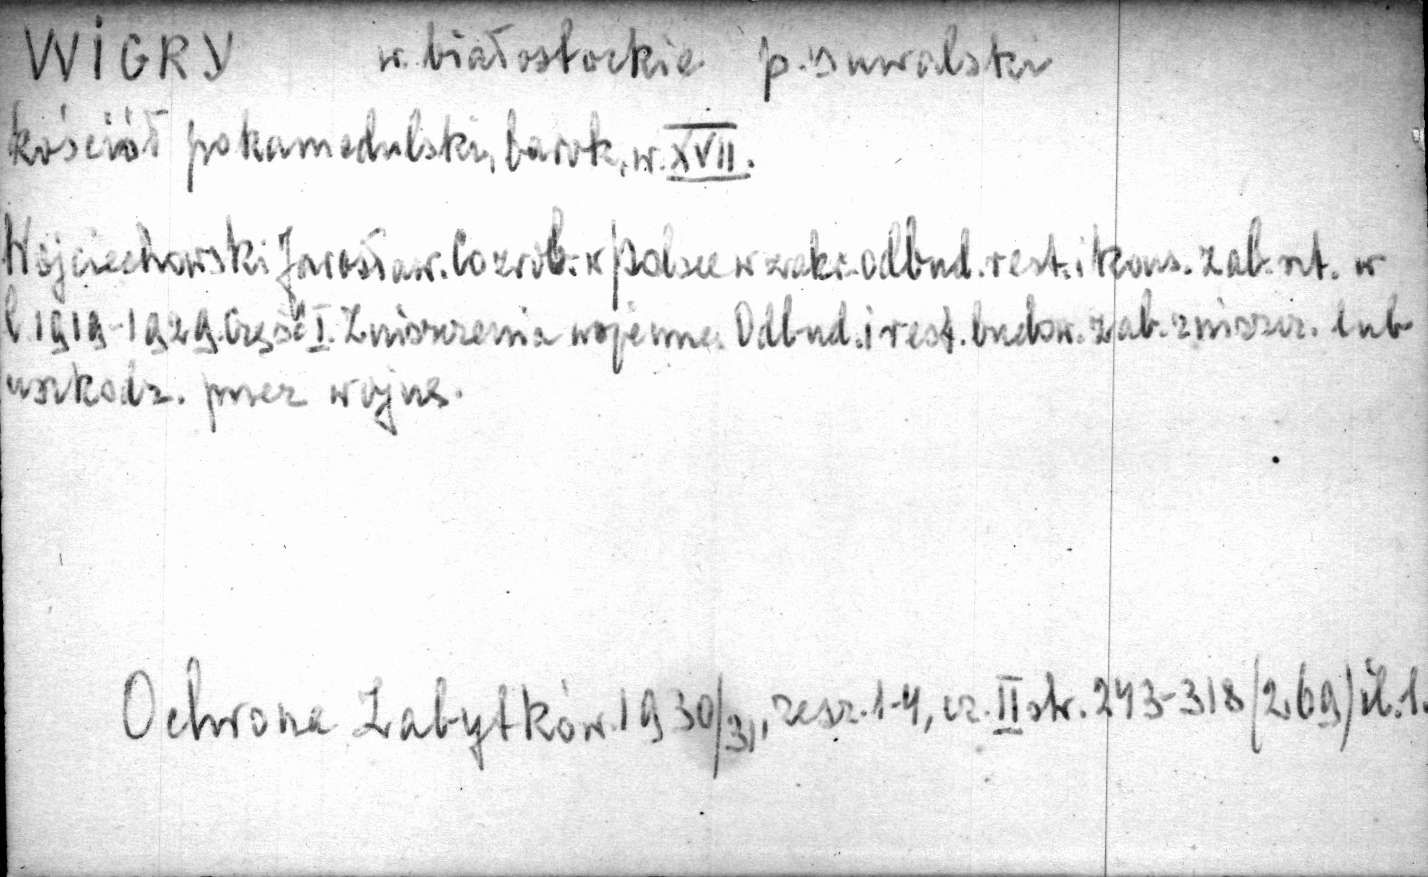 WIGRY w. białostockie p. suwalski
kościół pokamedulski, barok, w. XVII.
Wojciechowski Jarosław. Co zrob. w Polsce w zakr. odbud. rest. i kons. zab. szt. w
l. 1919-1929. Część I. Zniszczenia wojenne. Odbud. i rest. budow. zab. zniszcz. lub
uszkodz. przez wojnę.
Ochrona Zabytków. 1930/31, zesz. 1-4, cz. II str. 243-318 (269) il. 1.